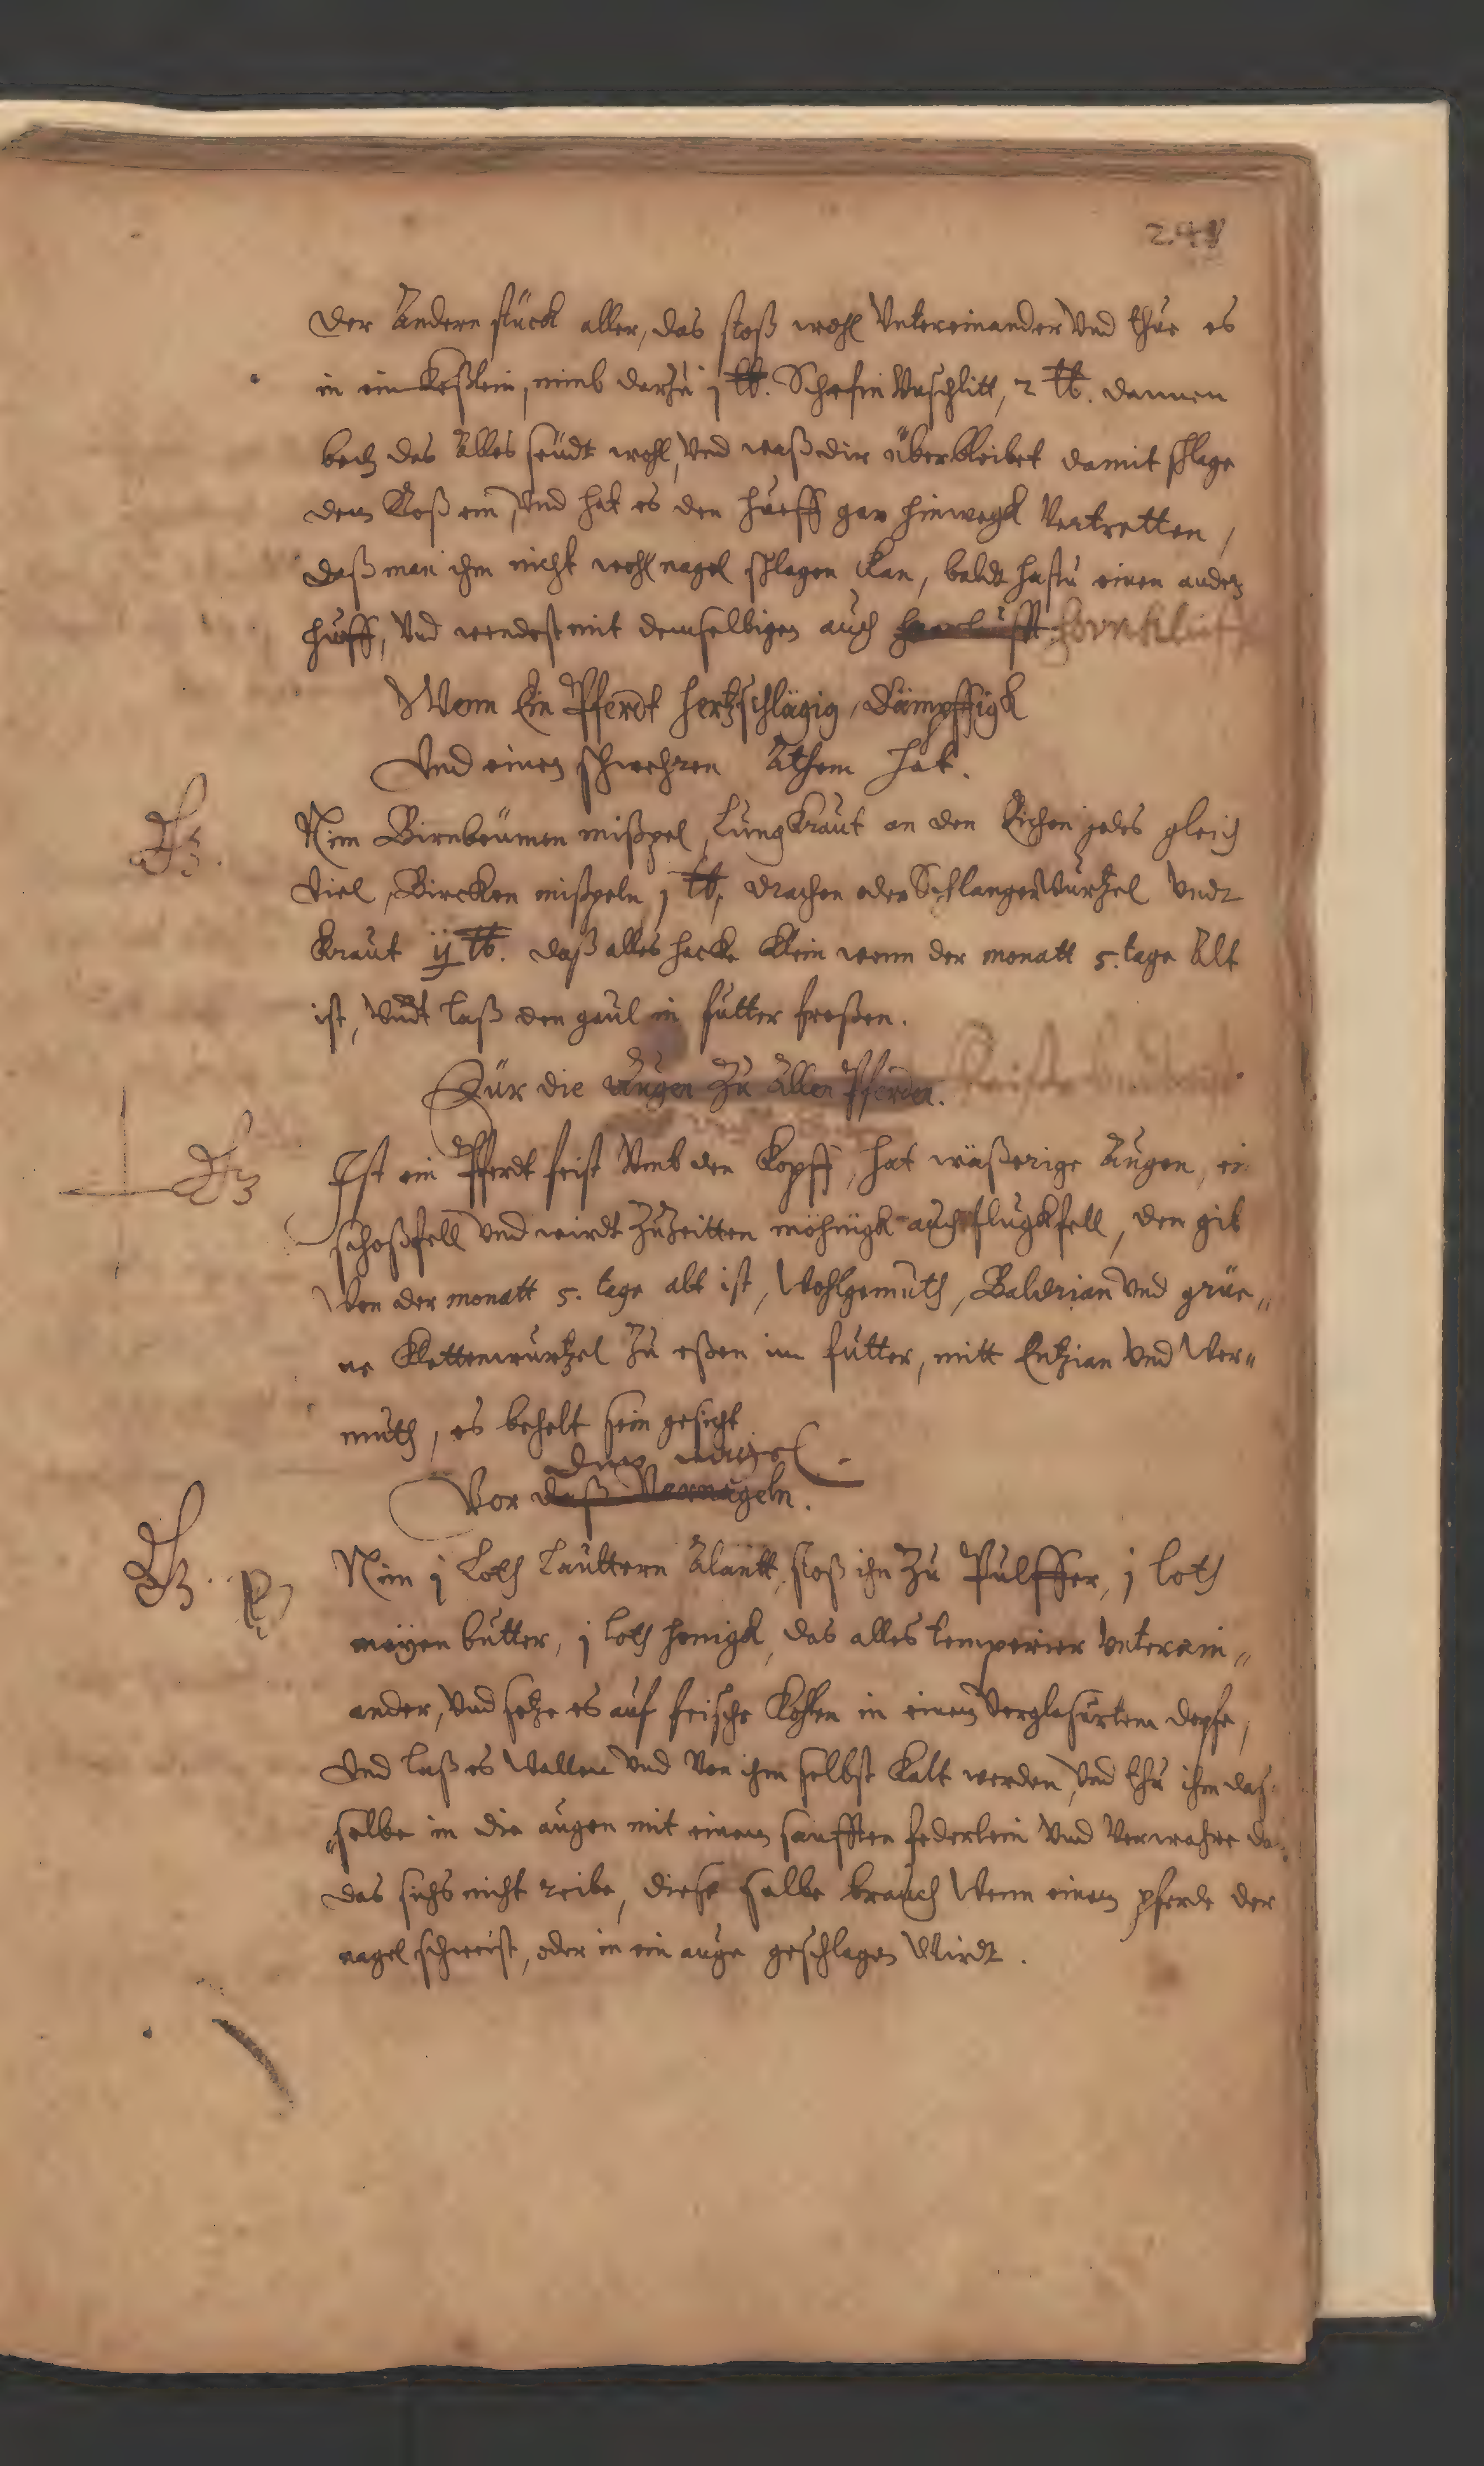 der Andern stück aller, das stoß wohl Untereinander Und thue es
in ein Keßlein, nimb darzu j ℔. Schefin Unschlitt, 2 ℔. dannen
bech das Alles seüdt wohl, Und waß dir überbleibet damit schlage
dem Roß ein, Und hat es den hueff gar hinwegk Vertretten,
daß man ihm nicht wohl nagel schlagen kan, baldt hastu einen ander
hueff, Und wendest mit demselbigen auch hornklufft
Wenn Ein Pferdt hertzschlägig, Dämpffigk
Und einen schwehren Athem hat.
Nim Birnbäumen mißpel, LungKraut an den Eichen jedes gleich
Viel, Bircken mißpeln j ℔, drachen oder SchlangenWurtzel Undt
Kraut ij ℔. daß alles hacke Klein wenn der monatt 5. tage Alt
ist, Undt laß den gaul in futter freßen.
Für die Augen Zu Allen Pferden.
Ist ein Pferdt feist Umb den Kopff, hat wäßerige Augen, ein
schoßfell Und wirdt Zuzeitten möhnigk auch flugkfell, dem gib
Wen der monatt 5. tage alt ist, Wohlgemuth, Baldrian Und grüe„
ne Klettenwurtzel Zu eßen im futter, mitt Entzian Und Wer„
muth, es behelt sein gesicht
den nagel
Vor daß Vernageln.
Nim j Loth Lauttern Alantt, stoß ihn Zu Pulffer, j loth
meyen butter, j loth honigk, das alles temperier Unterein„
ander, Und setze es auf frische Kohlen in einem Verglasurtem dopfe,
Und laß es Wallen Und Von ihm selbst Kalt werden, Und thu ihm das
„selbe in die augen mit einem sanfften federlein Und Verwahre
das sichs nicht reibe, diese salbe brauch Wenn einem pferde der
nagel schweist, oder in ein auge geschlagen Wirdt.